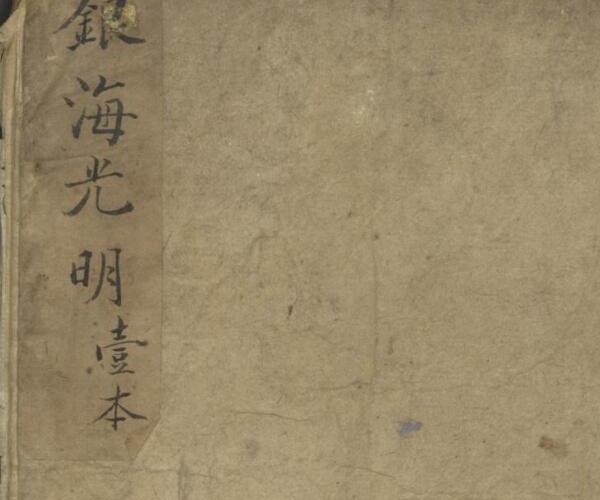 銀海光明壹本